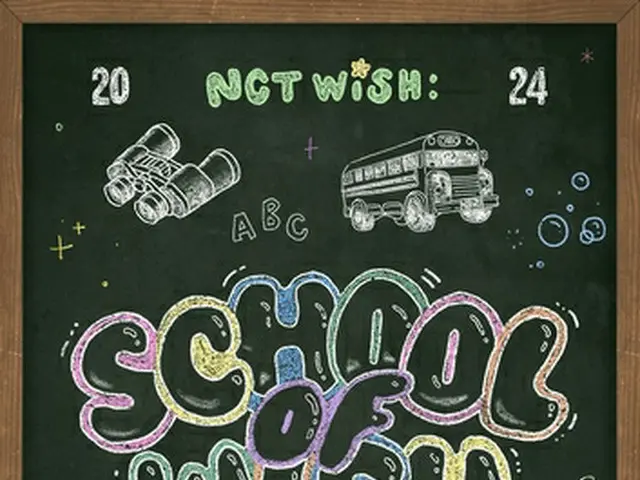 20 NCT WiSH: 24
ABC
SCHOOL
OF